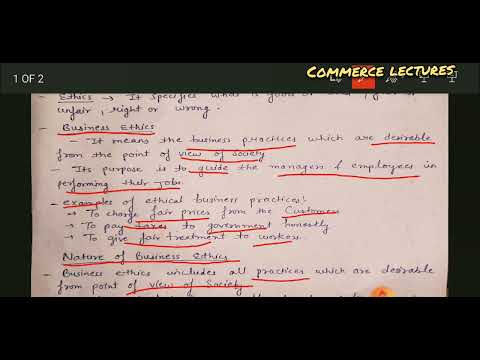 1 OF 2
COMMERCE LECTURES
- Ethics → It specifies what is good or
unfair, right or wrong.
- Business Ethics
- It means the business practices which are desirable
from the point of view of society
- Its purpose is to guide the managers & employees in
performing their jobs.
- examples of ethical business practices:
→ To charge fair prices from the customers
→ To pay taxes to government honestly.
→ To give fair treatment to workers.
Nature of Business Ethics
- Business ethics includes all practices which are desirable
from point of view of society